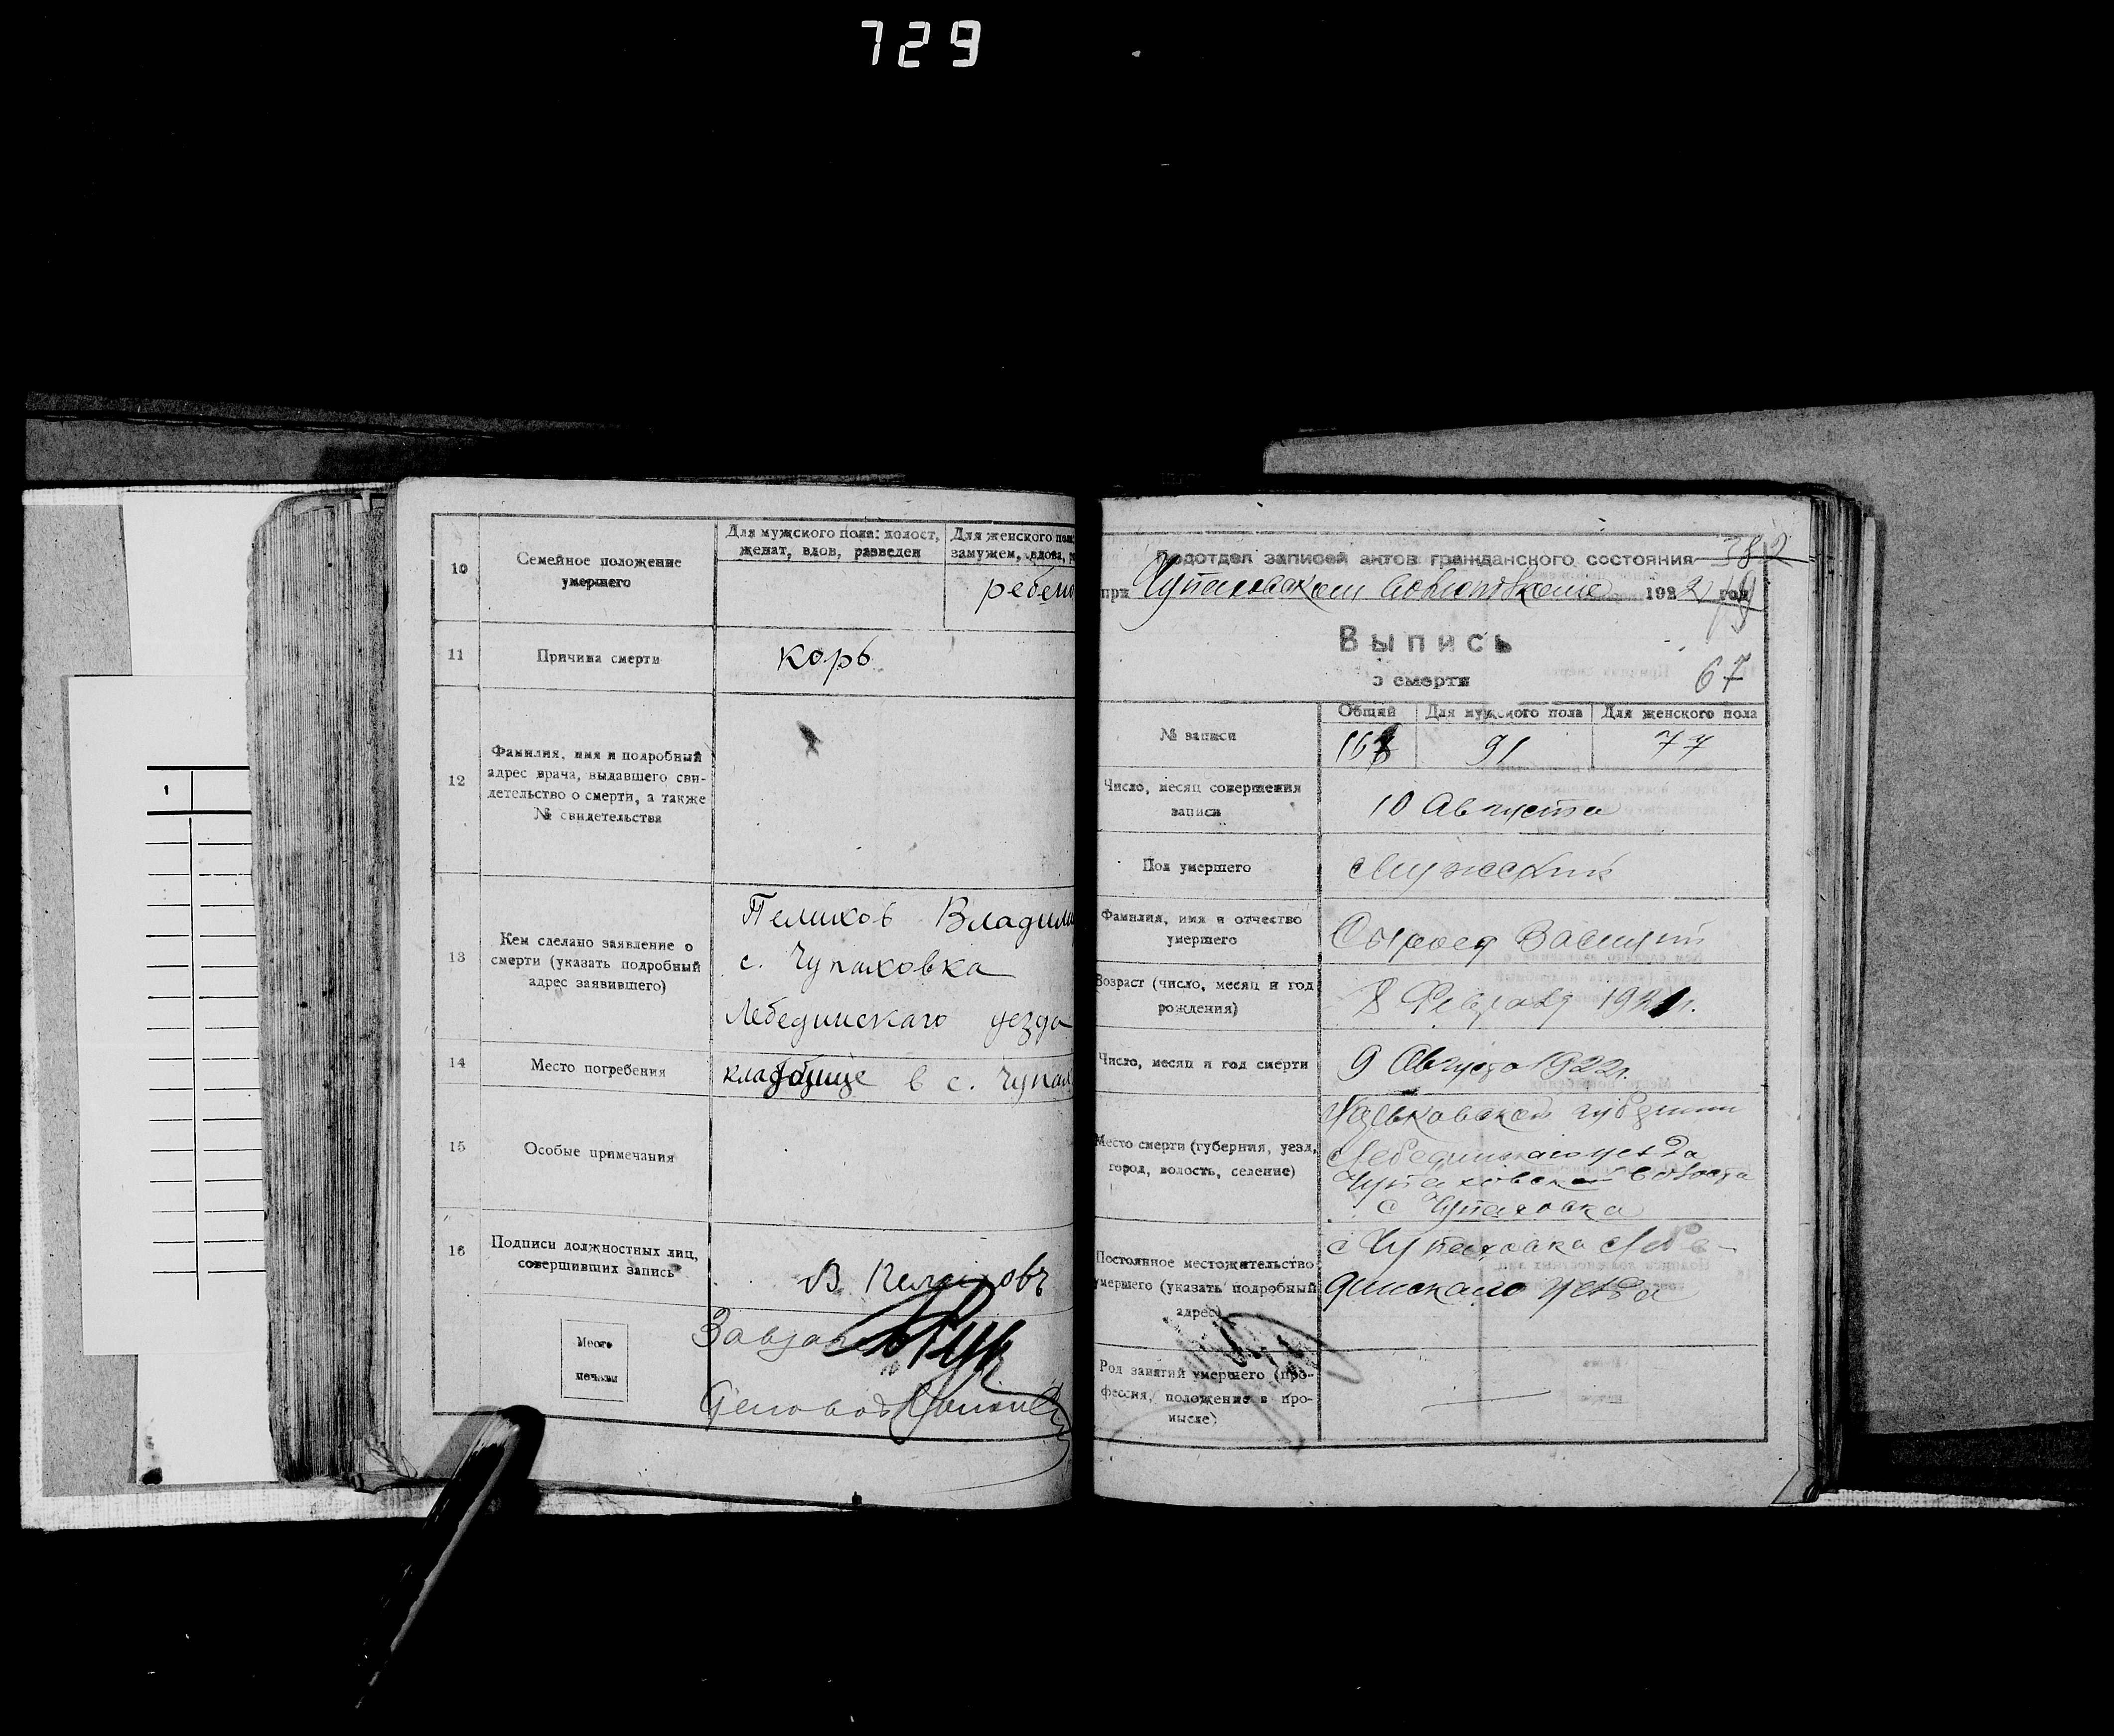 729
10
Семейное положение
умершего
Для мужского пола: холост,
женат, вдов, разведен
Для женского пола
замужем, вдова,
ребено
11
Причина смерти
корь
12
Фамилия, имя и подробный
адрес врача, выдавшего сви-
детельство о смерти, а также
№ свидетельства
13
Кем сделано заявление о
смерти (указать подробный
адрес заявившего)
Пелихов Владими
с. Чупаховка
Лебединскаго уезда
14
Место погребения
кладбище в с. Чупах
15
Особые примечания
16
Подписи должностных лиц,
совершивших запись
В Пелиховъ
Место
печати
1
Подотдел записей актов гражданского состояния
382
при Чупаховском 1922 год
Выпись
о смерти
67
№ записи
Общий
Для мужского пола
Для женского пола
168
91
77
Число, месяц совершения
записи
10 Августа
Пол умершего
Мужской
Фамилия, имя и отчество
умершего
Сыроед
Возраст (число, месяц и год
рождения)
8 Февраля 1921 г.
Число, месяц и год смерти
9 Августа 1922 г.
Место смерти (губерния, уезд,
город, волость, селение)
Харьковской губернии
Лебединскаго уезда
Чупаховской волости
с Чупаховка
Постоянное местожительство
умершего (указать подробный
адрес)
с Чупаховка Лебе-
динскаго уезда
Род занятий умершего (про-
фессия, положение в про-
мысле)